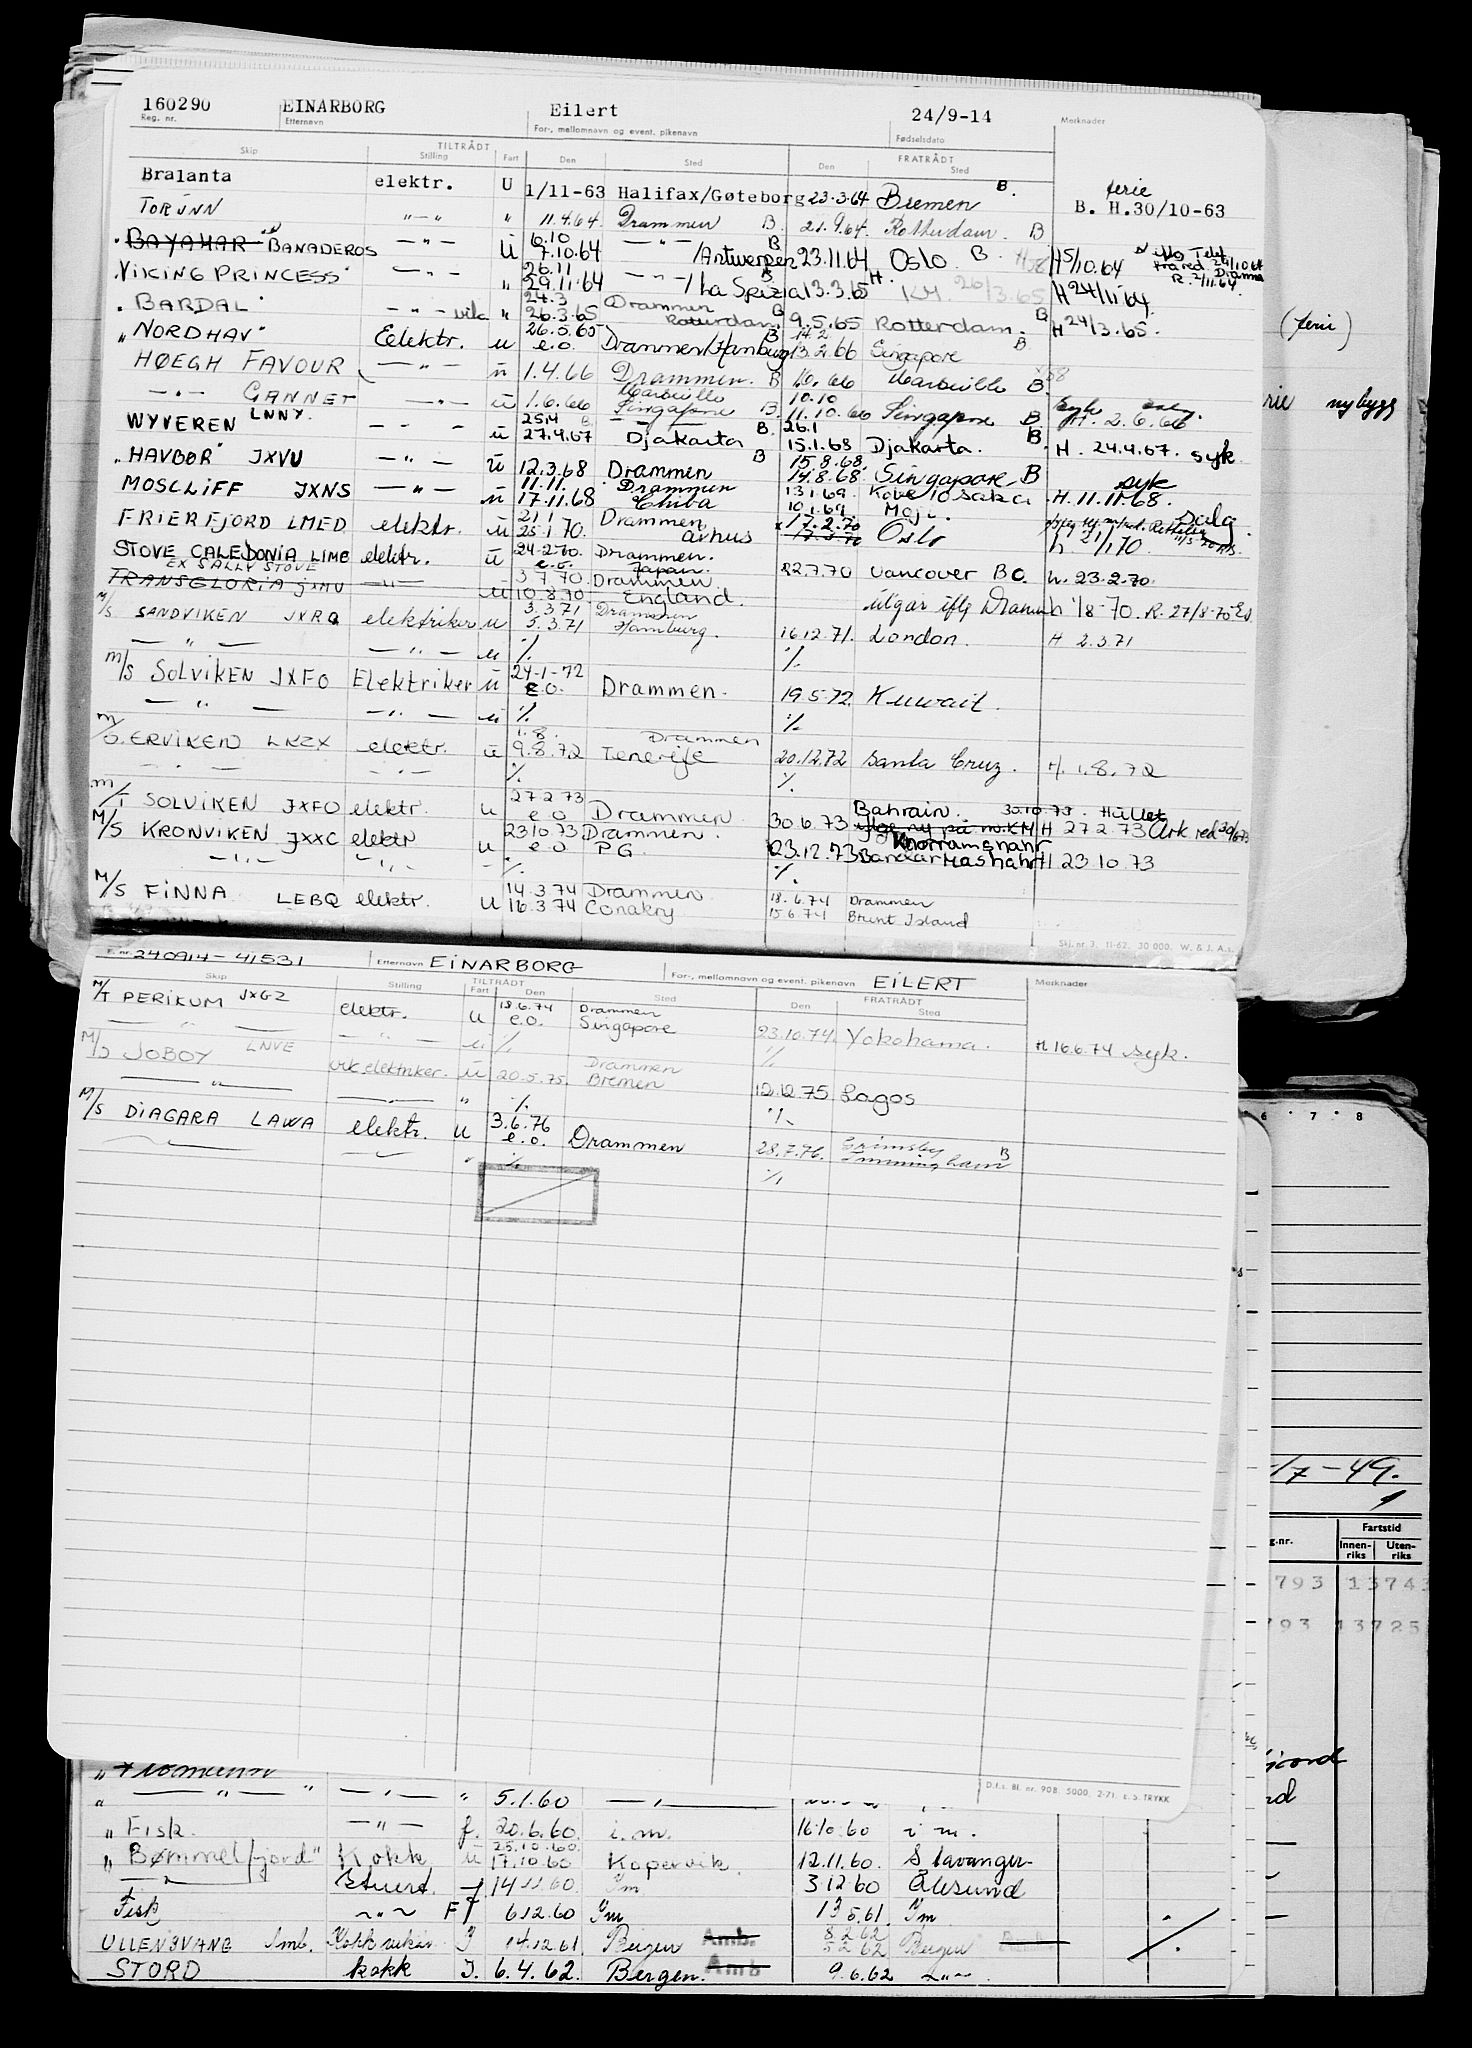 160290 EINARBORG Eilert 24/9-14 Merknader
Reg. nr. Etternavn For-, mellomnavn og event. pikenavn Fødselsdato
TILTRÅDT FRATRÅDT
Skip Stilling Fart Den Sted Den Sted
ferie
Bralanta elektr. U 1/11-63 Halifax/Gøteborg 23.3.64 Bremen B. B. H.30/10-63
TORINN —"— " 11.4.64 Drammen B. 21.9.64 Rotterdam. B
6.10 —"— B
BAYAMAR BANADEROS —"— U 7.10.64 /Antwerpen 23.11.64 Oslo B. H5/10.64
26.11
"VIKING PRINCESS" —"— " 29.11.64 —"—/La Spezia 13.3.65 H. KH. 26/3.65 H24/11 64.
24.3 Drammen B
"BARDAL" —"— vik " 26.3.65 Rotterdam. 9.5.65 Rotterdam. B H 24/3.65. (ferie)
26.5.65 B 14.2
"NORDHAV" Eelektr. u e.o. Drammen/Hamburg 13.2.66 Singapore B
HØEGH FAVOUR —"— u 1.4.66 Drammen. B 10.6.66 Marseille B
Marseille 10.10 Syk
—"— GANNET —"— u 1.6.66 Singapore B. 11.10.66 Singapore B H. 2.6.66 nybygg
25/4 B. 26.1
WYVEREN LNNY. — " — u 27.4.67 Djakarta 15.1.68 Djakarta. B H. 24.4.67. syk
B 15.8.68
"HAVBØR" JXVU —"— u 12.3.68 Drammen 14.8.68 Singapore B
11.11. Drammen 13.1.69. Kobe/Osaka syk
MOSCLIFF JXNS —"— u 17.11.68 Chiba 10.1.69 Moji. H. 11.11.68.
21.1 Drammen 17.2.70 salg
FRIERFJORD LMED elektr. u 25.1.70. århus 17.3.70 Oslo h. 21/1 70.
24.2.70. Drammen.
STOVE CALEDONIA LIMB elektr. u e.o. Japan. 22.7.70 Vancover B C. h. 23.2.70.
EX SALLY STOVE 3.7.70. Drammen
TRANSGLORIA JXHU —"— u 10.8.70 England. utgår iflg Dramm h 1/8-70. R. 27/8-70 Es
3.3.71 Drammen
M/S SANDVIKEN JXRQ elektriker u 5.3.71 Hamburg. 16.12.71. London. H 2.3.71
— " — —"— u % %
24-1-72
M/S SOLVIKEN JXFO Elektriker u e.o. Drammen. 19.5.72. Kuwait.
— " — —"— u % %
1.8. Drammen
M/S ERVIKEN LKZX elektr. u 9.8.72 Tenerife 20.12.72 Santa Cruz. H. 1.8.72
— " — —"— % %
27.2.73 Bahrain. 30.10.73. Hullet
M/T SOLVIKEN JXFO elektr. u e.o Drammen. 30.6.73 H 27.2.73 Ark red
23.10.73 Drammen. Khorramshahr
M/S KRONVIKEN JXXC elektr u e.o P.G. 23.12.73 Bandar Mashahr H 23.10.73
—"— —"— - %. %.
14.3.74 Drammen 18.6.74 Drammen
M/S FINNA LEBQ elektr. u 16.3.74 Conakry 15.6.74 Brunt Island
Skj. nr. 3. 11-62. 30 000. W. & J. A.s.
F. nr. 240914-41531 Etternavn EINARBORG For-, mellomnavn og event. pikenavn EILERT Merknader
TILTRÅDT FRATRÅDT
Skip Stilling Fart Den Sted Den Sted
18.6.74 Drammen
M/T PERIKUM JXGZ elektr. u e.o. Singapore 23.10.74. Yokohama. H 16.6.74 syk.
— " — — " — u. % %
Drammen
M/S JOBOY LNVE vik elektriker. u 20.5.75. Bremen 12.12.75 Lagos
— " — —"— " % %
3.6.76
M/S DIAGARA LAWA elektr. u e.o. Drammen 28.7.76. Grimsby B
Immingham
— " — — " — " % %
6 7 8
-/7-49.
g.nr. Fartstid
Innen-riks Uten-riks
793 13743
793 13725
D.f.s. Bl. nr. 908. 5000. 2-71. E. S. TRYKK
" — " — " — " — " 5.1.60 — " —
" Fisk. —"— f. 20.6.60. i.m. 16.10.60 i m.
25.10.60.
" Bømmelfjord" Kokk u 17.10.60 Kopervik. 12.11.60. Stavanger
— " — Stuert f 14.11.60. Ym 3.12.60 Ålesund
Fisk ~"~ Ff 6.12.60 Ym 13.5.61. Ym
8.2.62
ULLENSVANG Amb. Kokk vikar J 14.12.61 Bergen Amb. 5.2.62 Bergen
STORD kokk J. 6.4.62. Bergen. Amb 9.6.62 —"—.